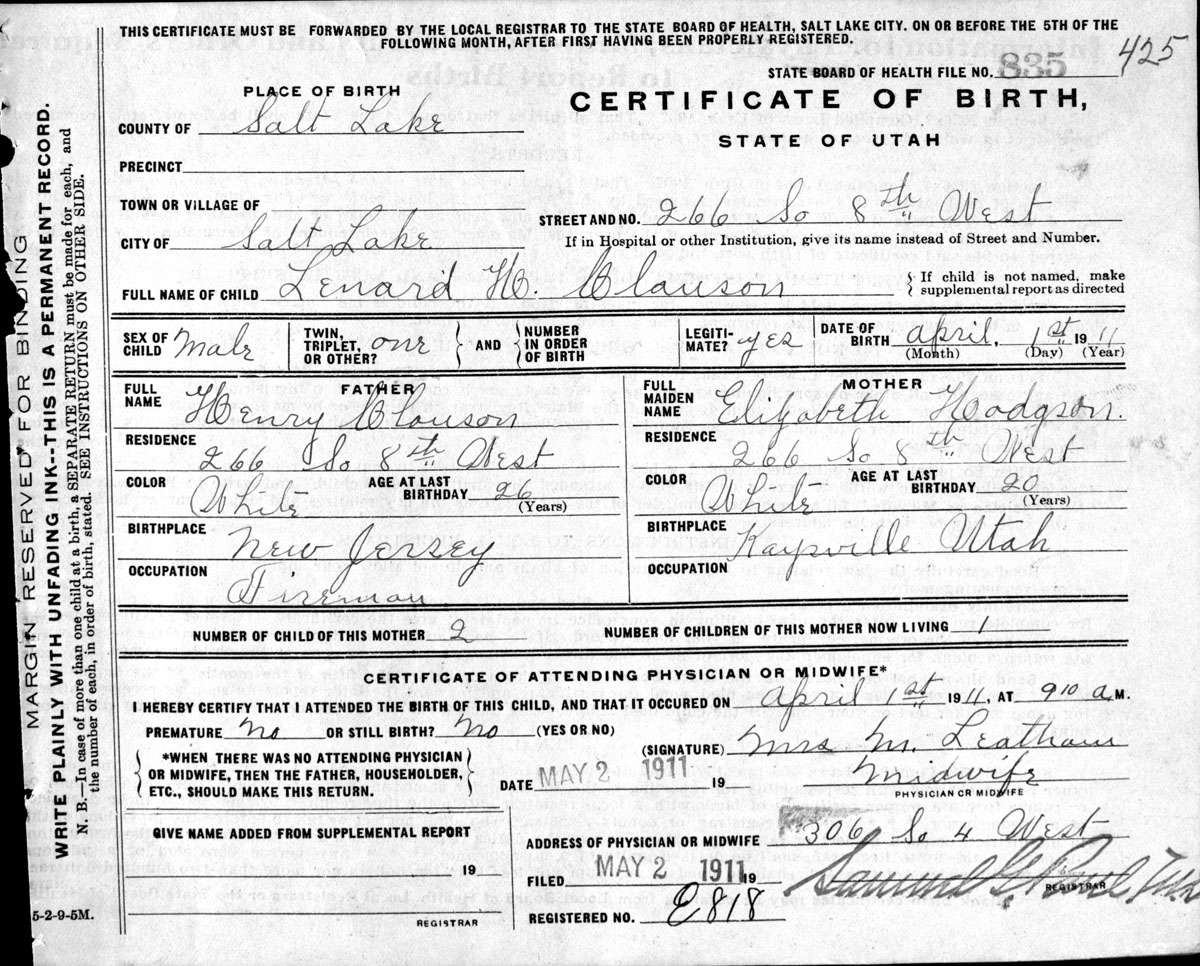 THIS CERTIFICATE MUST BE FORWARDED BY THE LOCAL REGISTRAR TO THE STATE BOARD OF HEALTH, SALT LAKE CITY. ON OR BEFORE THE 5TH OF THE
FOLLOWING MONTH, AFTER FIRST HAVING BEEN PROPERLY REGISTERED.
425
STATE BOARD OF HEALTH FILE NO. 835
PLACE OF BIRTH
CERTIFICATE OF BIRTH,
STATE OF UTAH
COUNTY OF Salt Lake
PRECINCT
TOWN OR VILLAGE OF
STREET AND NO. 266 So 8th West
CITY OF Salt Lake
If in Hospital or other Institution, give its name instead of Street and Number.
FULL NAME OF CHILD Lenard H. Clauson
{ If child is not named, make
supplemental report as directed
SEX OF CHILD Male
TWIN, TRIPLET, OR OTHER? one
} AND {
NUMBER IN ORDER OF BIRTH
LEGITI-MATE? yes
DATE OF BIRTH April, 1st 1911
(Month) (Day) (Year)
FATHER
FULL NAME Henry Clauson
RESIDENCE
266 So 8th West
COLOR White
AGE AT LAST BIRTHDAY 26
(Years)
BIRTHPLACE
New Jersey
OCCUPATION
Fireman
MOTHER
FULL MAIDEN NAME Elizabeth Hodgson.
RESIDENCE
266 So 8th West
COLOR White
AGE AT LAST BIRTHDAY 20
(Years)
BIRTHPLACE
Kaysville Utah
OCCUPATION
NUMBER OF CHILD OF THIS MOTHER 2
NUMBER OF CHILDREN OF THIS MOTHER NOW LIVING 1
CERTIFICATE OF ATTENDING PHYSICIAN OR MIDWIFE*
I HEREBY CERTIFY THAT I ATTENDED THE BIRTH OF THIS CHILD, AND THAT IT OCCURED ON April 1st 1911, AT 9 10 a.M.
PREMATURE No OR STILL BIRTH? No (YES OR NO)
(SIGNATURE) Mrs M. Leatham
Midwife
PHYSICIAN OR MIDWIFE
{ *WHEN THERE WAS NO ATTENDING PHYSICIAN
OR MIDWIFE, THEN THE FATHER, HOUSEHOLDER,
ETC., SHOULD MAKE THIS RETURN. }
DATE MAY 2 1911 19
GIVE NAME ADDED FROM SUPPLEMENTAL REPORT
19
REGISTRAR
ADDRESS OF PHYSICIAN OR MIDWIFE 306 So 4 West
FILED MAY 2 1911 19
Samuel G. Paul
REGISTRAR
REGISTERED NO. E818
5-2-9-5M.
MARGIN RESERVED FOR BINDING
WRITE PLAINLY WITH UNFADING INK--THIS IS A PERMANENT RECORD.
N. B.—In case of more than one child at a birth, a SEPARATE RETURN must be made for each, and
the number of each, in order of birth, stated. SEE INSTRUCTIONS ON OTHER SIDE.